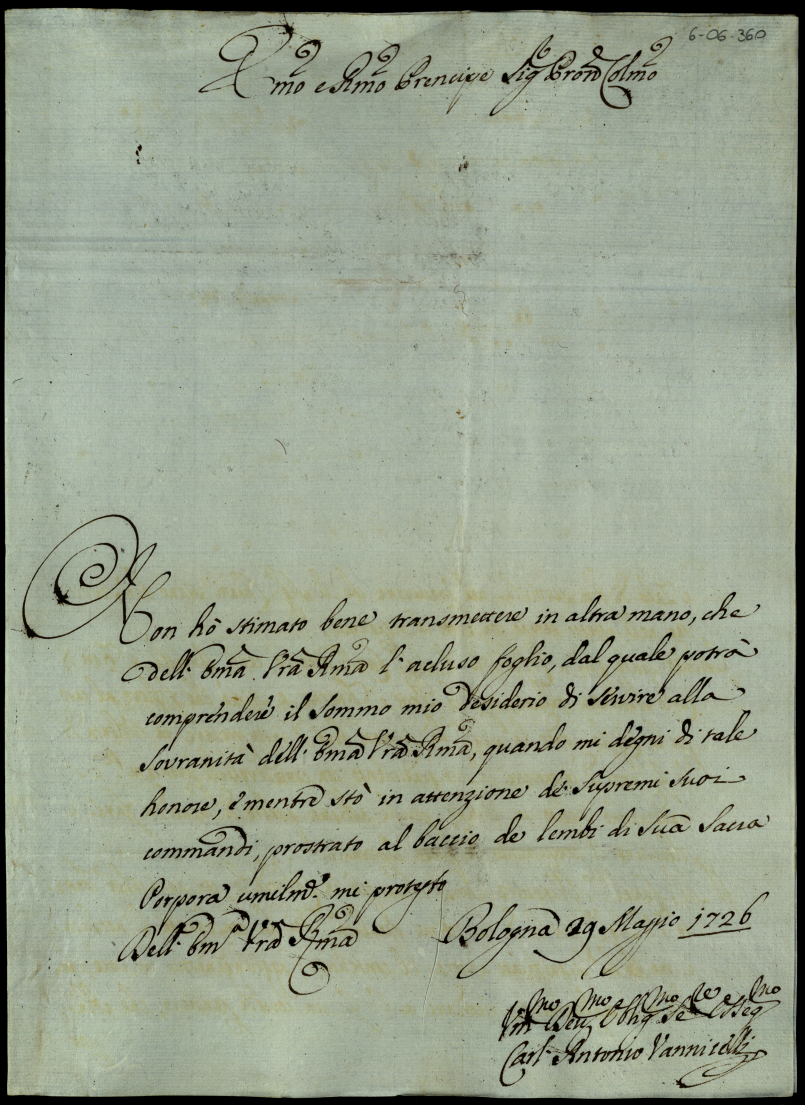 6-06-360
Emo e Rmo Prencipe Sig Pron Colmo
Non hò stimato bene transmettere in altra mano, che
dell' Emã Vrã Rmã l' acluso foglio, dal quale potrà
comprendere il sommo mio desiderio di servire alla
sovranità dell' Emã Vrã Rmã, quando mi degni di tale
honore, e mentre stò in attenzione de' supremi suoi
commandi, prostrato al baccio de lembi di sua sacra
Porpora umilmẽ mi protesto
Dell' Emª Vrã Rmã Bologna 29 Maggio 1726
Vmmo Devmo Obligmo Sere Osseqmo
Carl' Antonio Vannicelli